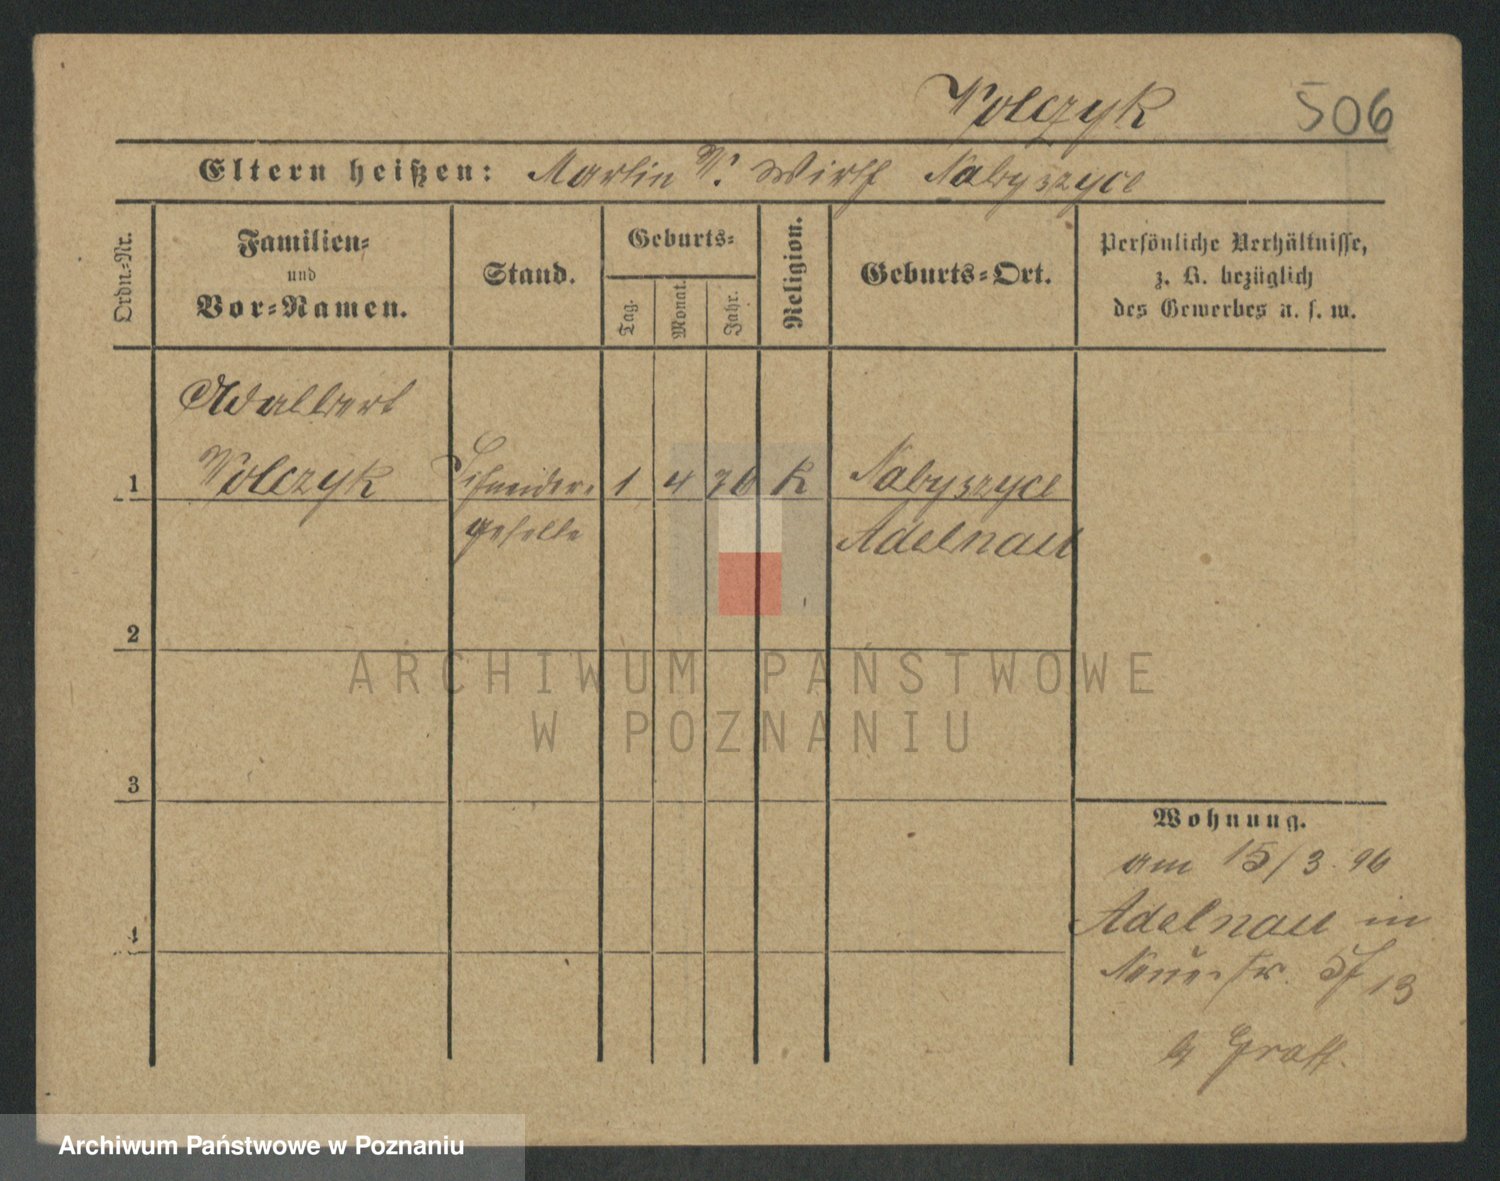 Wolczyk 506
Eltern heißen: Martin W. Wirth Nabyszyce
Ordn.-Nr.
Familien-
und
Vor-Namen.
Stand.
Geburts-
Tag.
Monat.
Jahr.
Religion.
Geburts-Ort.
Persönliche Verhältnisse,
z. B. bezüglich
des Gewerbes u. s. w.
Adalbert
1 Wolczyk Schneider- 1 4 76 K Nabyszyce
geselle Adelnau
2
3
4
Wohnung.
am 15/3 96
Adelnau in
Neue-str. 13
b Graff.
ARCHIWUM PAŃSTWOWE
W POZNANIU
Archiwum Państwowe w Poznaniu